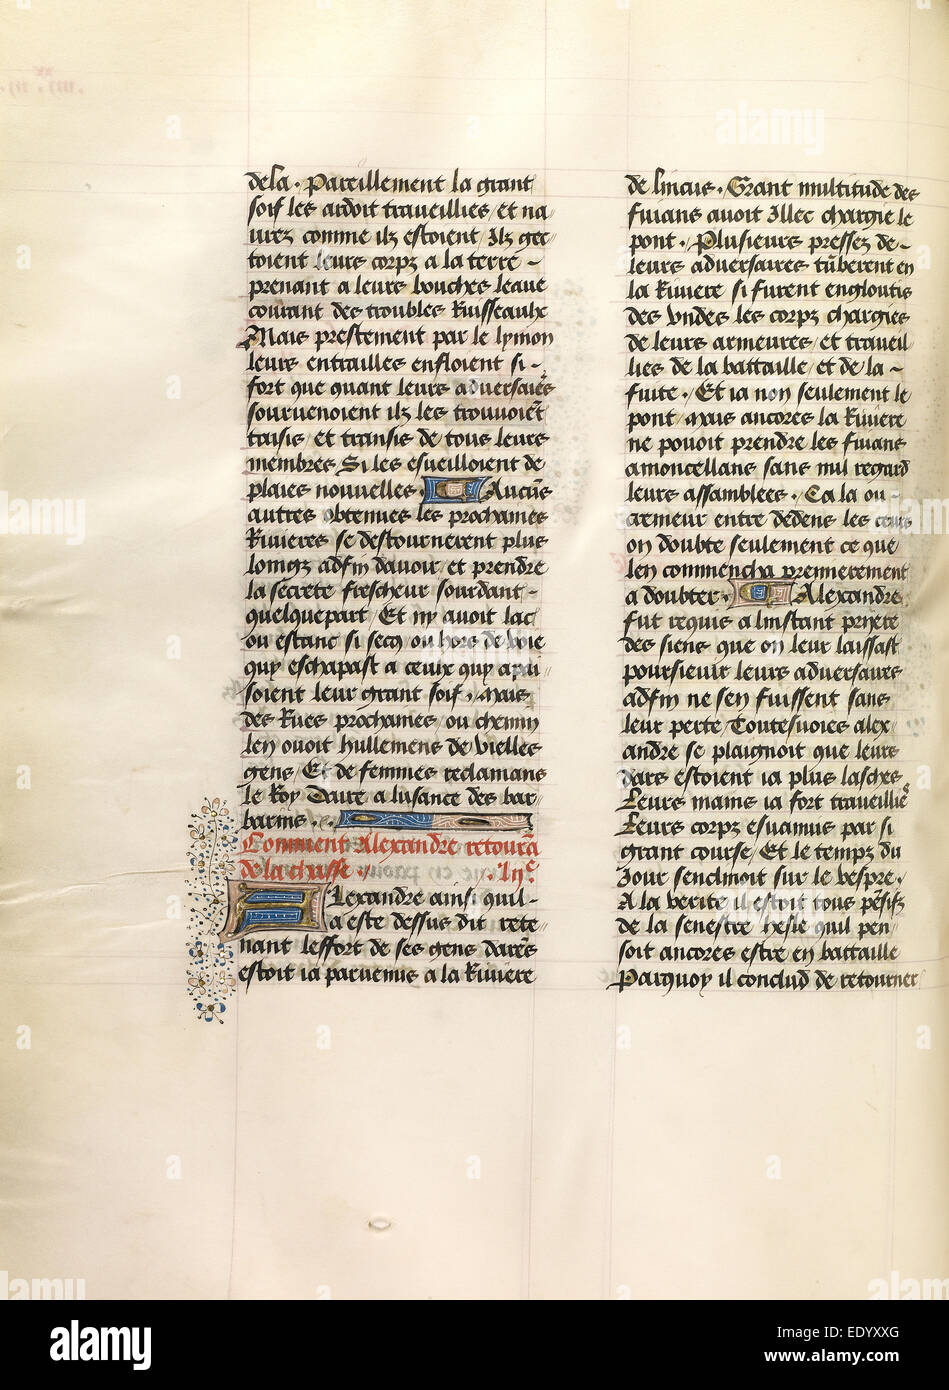 dela. Pareillement la grant
soif les ardoit traveillies/ et na
vrez comme ilz estoient/ Ilz get
toient leurs corpz a la terre
prenant a leurs bouches leaue
courant des troubles Ruisseaulx
Mais prestement par le lymon
leurs entrailles enfloient si
fort que quant leurs adversaires
sourvenoient ilz les trouvoient
transis de tous leurs
membres Si les esveilloient de
plaies nouvelles. Aucuns
autres obtenues les prochaines
Rivieres se destournerent plus
loingz adfin davoir/ et prendre
la secrete frescheur sourdant
quelquepart/ Et ny avoit lac
ou estanc si secq/ ou hors de voie
quy eschapast a ceulx quy apai
soient leur grant soif. Mais
des Rues prochaines/ ou chemin
len ouoit hullemens de vielles
gens/ Et de femmes reclamans
le Roy Daire a lusance des bar
barins.
Comment Alexandre retourna
de la chasse.
Alexandre ainsi quil
a este dessus dit rete
nant leffort de ses gens
estoit ia parvenus a la Riviere
de lincus. Grant multitude des
fuians avoit Illec chargie le
pont. Plusieurs pressez de
leurs adversaires tumberent en
la Riviere si furent engloutis
des undes les corpz chargies
de leurs armeures/ et traveil
lies de la battaille/ et de la
fuite. Et ia non seulement le
pont/ mais ancores la Riviere
ne povoit prendre les fuians
amoncellans sans nul regard
leurs assamblees. Ca la ou
cremeur entre dedens les
on doubte seulement ce que
len commencha premierement
a doubter. Alexandre
fut requis a linstant priere
des siens que on leur laissast
poursievir leurs adversaires
adfin ne sen fuissent sans
leur perte/ Toutesvoies alex
andre se plaignoit que leurs
dars estoient ia plus lasches
Leurs mains ia fort traveillies
Leurs corpz esvanuis par si
grant course/ Et le tempz du
Jour senclinoit sur le vespre.
A la verite il estoit tous
de la senestre hesle quil pen
soit ancores estre en battaille
Parquoy il conclud de retourner
alamy
Image ID: EDYXXG
www.alamy.com